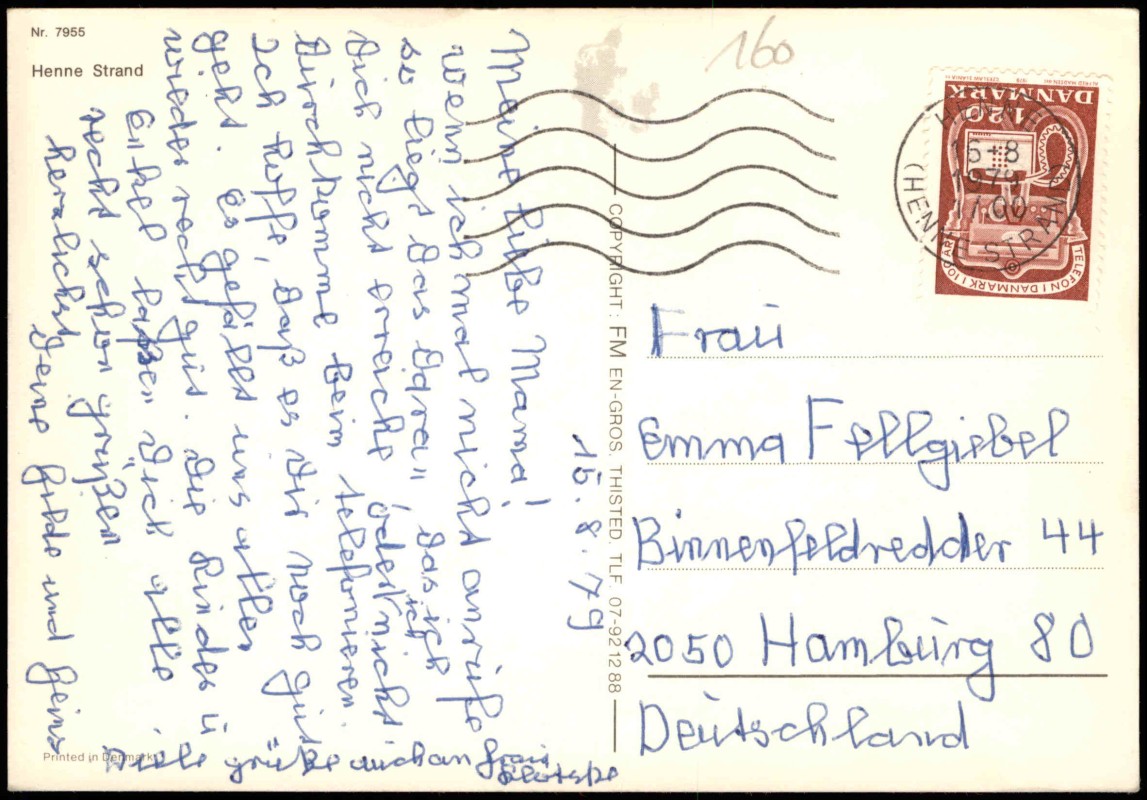 Nr. 7955
Henne Strand
15.8.79
Meine liebe Mama!
Wenn ich mal nicht anrufe
so liegt das daran das ich
Dich nicht erreiche oder nicht
ich
Dürchkomme beim telefonieren.
Ich hoffe, daß es Dir noch güt
geht. Es gefällt uns allen
wieder recht güt. Die Kinder ü
Enkel laßen Dich alle
recht schön grüßen.
Herzlichst Deine Gerda und Heinz
Viele grüße auch an Fraü
Printed in Denmark
COPYRIGHT: FM EN-GROS. THISTED. TLF. 07-921288
160
DANMARK
120
TELEFON I DANMARK I 100 ÅR
HENNE
15+8
1979
17.00
(HENNE STRAND)
Fraü
Emma Fellgiebel
Binnenfeldredder 44
2050 Hambürg 80
Deütschland